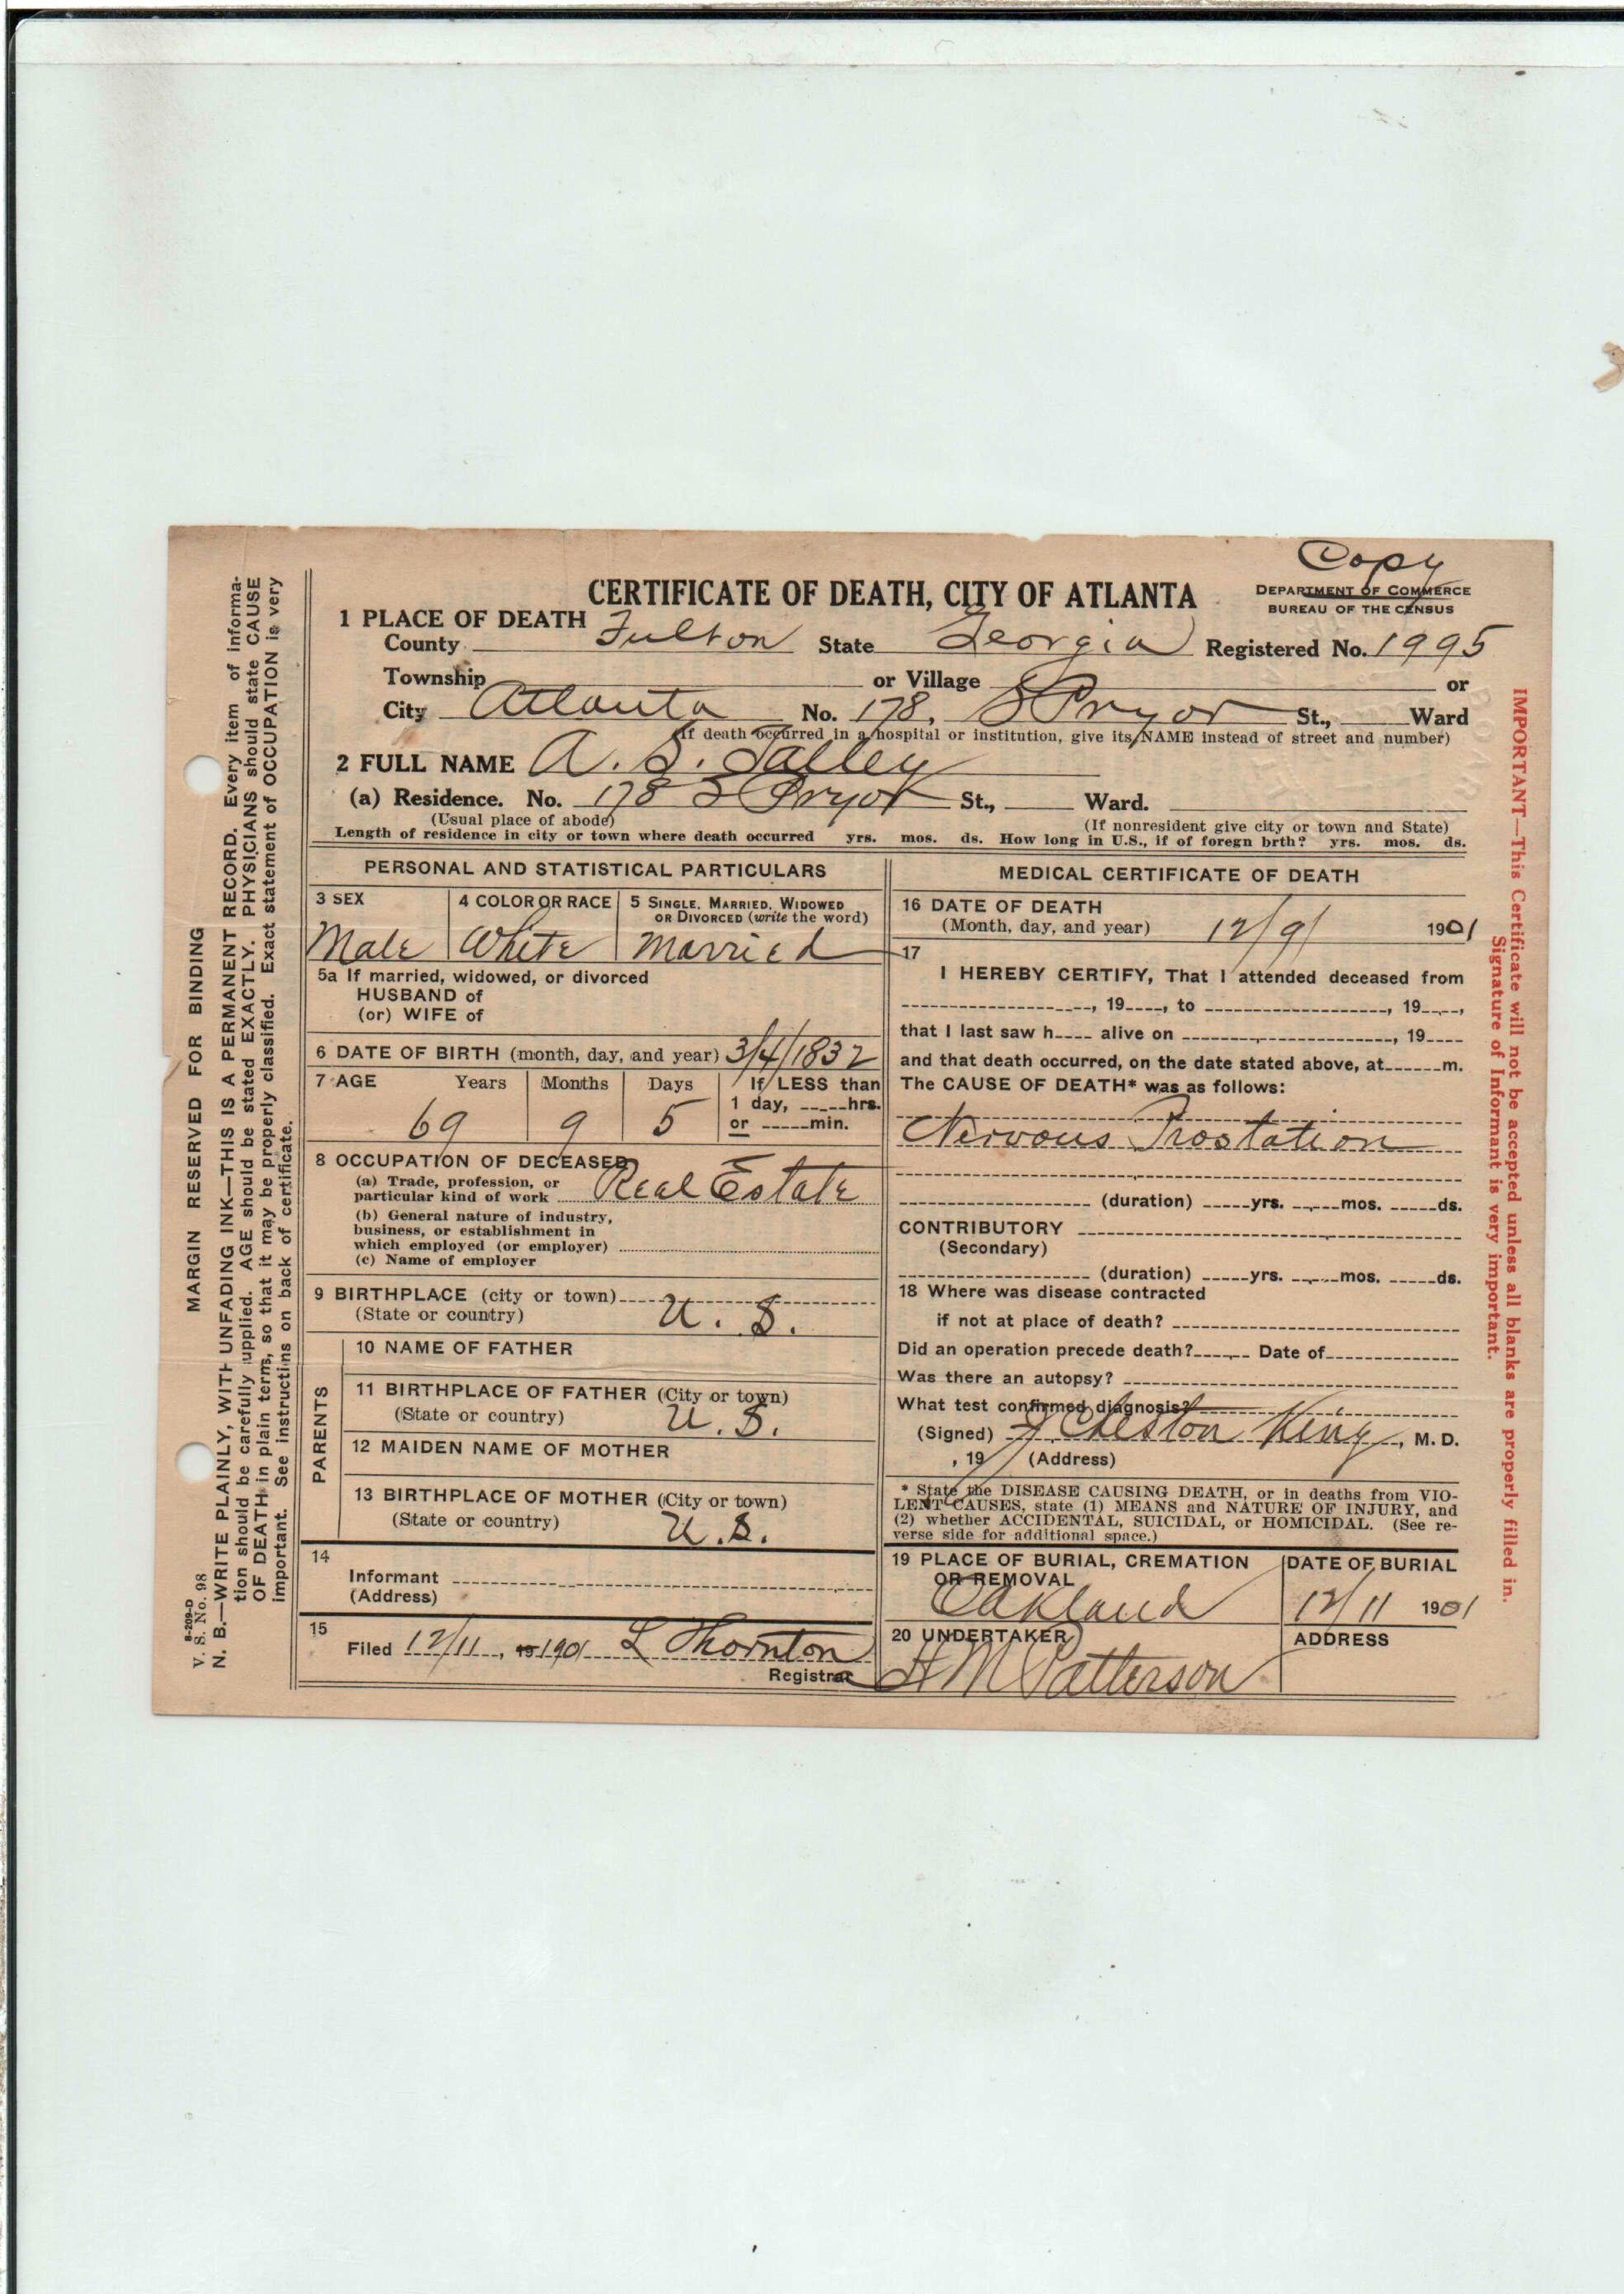 Copy
CERTIFICATE OF DEATH, CITY OF ATLANTA
DEPARTMENT OF COMMERCE
BUREAU OF THE CENSUS
1 PLACE OF DEATH
County Fulton State Georgia Registered No. 1995
Township or Village or
City Atlanta No. 178. S Pryor St., Ward
(If death occurred in a hospital or institution, give its NAME instead of street and number)
2 FULL NAME A. S. Talley
(a) Residence. No. 178 S Pryor St., Ward.
(Usual place of abode) (If nonresident give city or town and State)
Length of residence in city or town where death occurred yrs. mos. ds. How long in U.S., if of foregn brth? yrs. mos. ds.
PERSONAL AND STATISTICAL PARTICULARS
3 SEX 4 COLOR OR RACE 5 SINGLE, MARRIED, WIDOWED
OR DIVORCED (write the word)
Male White Married
5a If married, widowed, or divorced
HUSBAND of
(or) WIFE of
6 DATE OF BIRTH (month, day, and year) 3/4/1832
7 AGE Years Months Days If LESS than
1 day, -----hrs.
69 9 5 or -----min.
8 OCCUPATION OF DECEASED
(a) Trade, profession, or
particular kind of work Real Estate
(b) General nature of industry,
business, or establishment in
which employed (or employer)
(c) Name of employer
9 BIRTHPLACE (city or town)
(State or country) U. S.
PARENTS
10 NAME OF FATHER
11 BIRTHPLACE OF FATHER (City or town)
(State or country) U. S.
12 MAIDEN NAME OF MOTHER
13 BIRTHPLACE OF MOTHER (City or town)
(State or country) U. S.
14
Informant
(Address)
15
Filed 12/11, 19 1901 L Thornton
Registrar
MEDICAL CERTIFICATE OF DEATH
16 DATE OF DEATH
(Month, day, and year) 12/9/ 1901
17
I HEREBY CERTIFY, That I attended deceased from
, 19----, to , 19----,
that I last saw h---- alive on , 19----
and that death occurred, on the date stated above, at------m.
The CAUSE OF DEATH* was as follows:
Nervous Prostation
(duration) -----yrs. -----mos. -----ds.
CONTRIBUTORY
(Secondary)
(duration) -----yrs. -----mos. -----ds.
18 Where was disease contracted
if not at place of death?
Did an operation precede death?------ Date of
Was there an autopsy?
What test confirmed diagnosis?
(Signed) J Cheston King, M. D.
, 19 (Address)
* State the DISEASE CAUSING DEATH, or in deaths from VIO-
LENT CAUSES, state (1) MEANS and NATURE OF INJURY, and
(2) whether ACCIDENTAL, SUICIDAL, or HOMICIDAL. (See re-
verse side for additional space.)
19 PLACE OF BURIAL, CREMATION DATE OF BURIAL
OR REMOVAL
Oakland 12/11 1901
20 UNDERTAKER ADDRESS
H M Patterson
MARGIN RESERVED FOR BINDING
8-209-D
V. S. No. 98
N. B.—WRITE PLAINLY, WITH UNFADING INK—THIS IS A PERMANENT RECORD. Every item of informa-
tion should be carefully supplied. AGE should be stated EXACTLY. PHYSICIANS should state CAUSE
OF DEATH in plain terms, so that it may be properly classified. Exact statement of OCCUPATION is very
important. See instructions on back of certificate.
IMPORTANT—This Certificate will not be accepted unless all blanks are properly filled in.
Signature of Informant is very important.